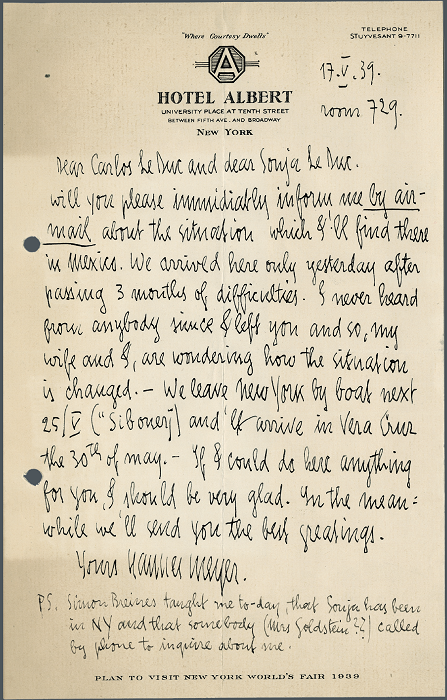 "Where Courtesy Dwells"
TELEPHONE
STUYVESANT 9-7711
A
HOTEL ALBERT
UNIVERSITY PLACE AT TENTH STREET
BETWEEN FIFTH AVE. AND BROADWAY
NEW YORK
17.V.39.
room 729.
Dear Carlos Le Duc and dear Sonja Le Duc.
will you please immidiatly inform me by air-
mail about the situation which I'll find there
in Mexico. We arrived here only yesterday after
passing 3 months of difficulties. I never heard
from anybody since I left you and so, my
wife and I, are wondering how the situation
is changed.– We leave new York by boat next
25/V ("Siboney") and 'll arrive in Vera Cruz
the 30th of may.– If I could do here anything
for you, I should be very glad. In the mean=
while we'll send you the best greatings.
Yours Hannes Meyer.
PS. Simon Breines taught me to-day, that Sonja has been
in NY and that somebody (Mrs Goldstein??) called
by phone to inquire about me.
PLAN TO VISIT NEW YORK WORLD'S FAIR 1939